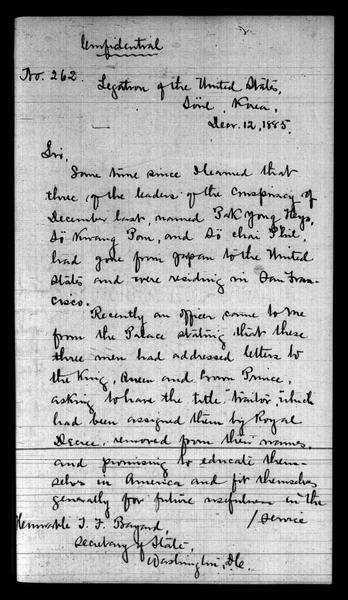 Confidential
No. 262.
Legation of the United States,
Söul, Korea,
Decr. 12, 1885.
Sir,
Some time since I learned that
three of the leaders of the conspiracy of
December last, named Pak Yong Heyo,
Sö Kwang Pom, and Sö Chai Phil,
had gone from Japan to the United
States and were residing in San Fran-
cisco.
Recently an officer came to me
from the Palace stating that these
three men had addressed letters to
the King, Queen and Crown Prince,
asking to have the title "traitor," which
had been assigned them by Royal
Decree, removed from their names,
and promising to educate them-
selves in America and fit themselves
generally for future usefulness in the
/ service
Honorable T. F. Bayard,
Secretary of State,
Washington, D.C.